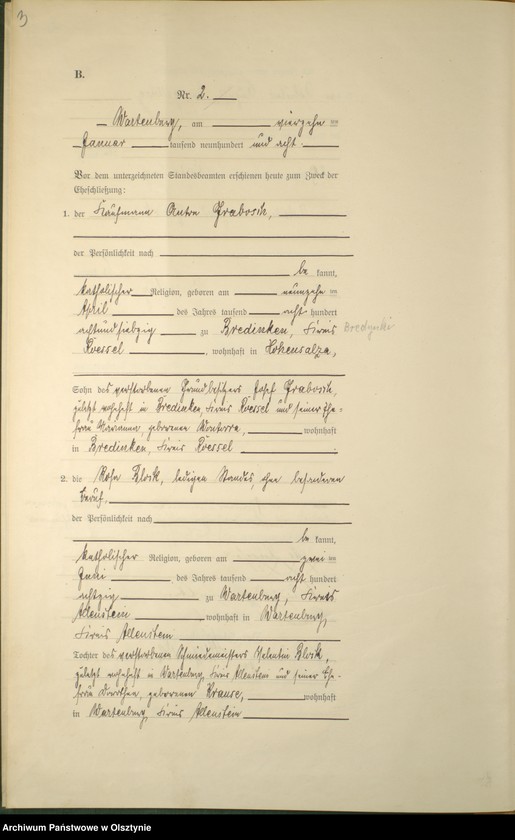 3
B.
Nr. 2.
Wartenburg, am vierzehn ten
Januar tausend neunhundert und acht
Vor dem unterzeichneten Standesbeamten erschienen heute zum Zweck der
Eheschließung:
1. der Kaufmann Anton Grabosch,
der Persönlichkeit nach
be kannt,
katholischer Religion, geboren am neunzehn ten
April des Jahres tausend acht hundert
achtundsiebzig zu Bredinken, Kreis Bredynki
Roessel, wohnhaft in Hohensalza,
Sohn des verstorbenen Grundbesitzers Josef Grabosch,
zuletzt wohnhaft in Bredinken, Kreis Roessel und seiner Ehe-
frau Marianna geborenen wohnhaft
in Bredinken, Kreis Roessel
2. die Rosa Block, ledigen Standes, ohne besonderen
Beruf,
der Persönlichkeit nach
be kannt,
katholischer Religion, geboren am zwei ten
Juni des Jahres tausend acht hundert
achtzig zu Wartenburg, Kreis
Allenstein wohnhaft in Wartenburg,
Kreis Allenstein
Tochter des verstorbenen Schmiedemeisters Valentin Block,
zuletzt wohnhaft in Wartenburg, Kreis Allenstein und seiner Ehe-
frau Dorothea, geborenen Krause, wohnhaft
in Wartenburg, Kreis Allenstein
Archiwum Państwowe w Olsztynie